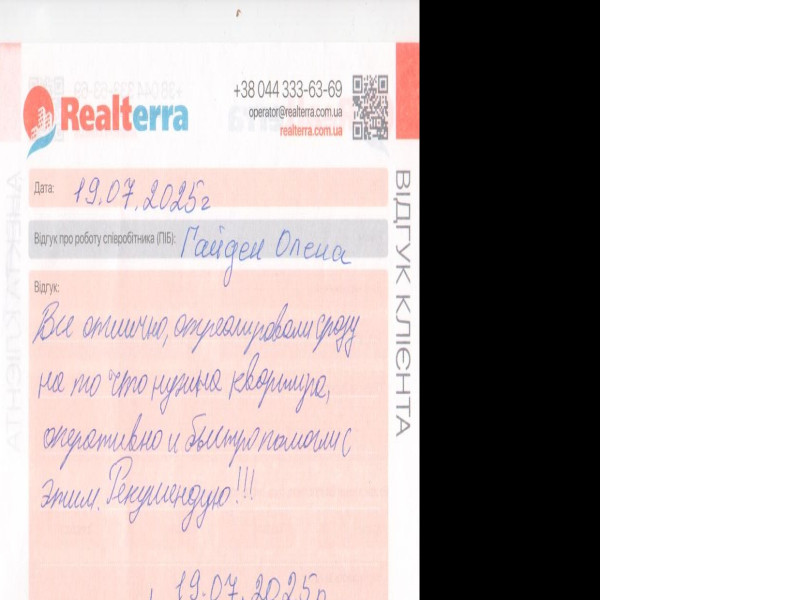 +38 044 333-63-69
operator@realterra.com.ua
Realterra
realterra.com.ua
Дата: 19.07.2025г
Відгук про роботу співробітника (ПІБ): Гайден Олена
Відгук:
Все отлично, отреагировали сразу
на то что нужна квартира,
оперативно и быстро помогли с
этим. Рекумендую!!!
19.07.2025р
ВІДГУК КЛІЄНТА
АНКЕТА КЛІЄНТА